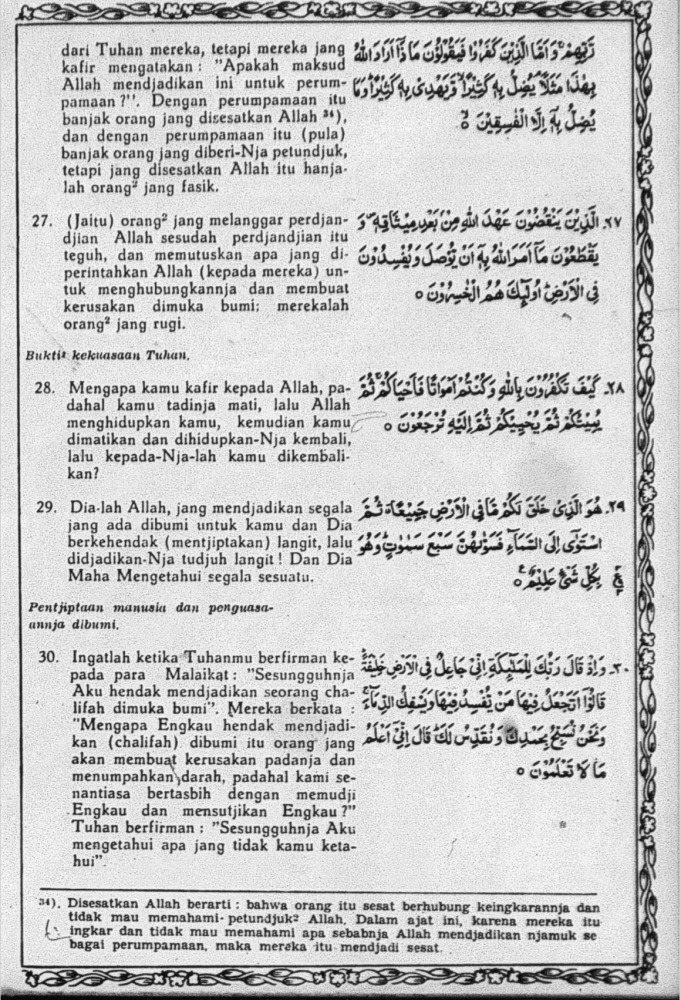 dari Tuhan mereka, tetapi mereka jang
kafir mengatakan : "Apakah maksud
Allah mendjadikan ini untuk perum-
pamaan ?". Dengan perumpamaan itu
banjak orang jang disesatkan Allah ³⁴),
dan dengan perumpamaan itu (pula)
banjak orang jang diberi-Nja petundjuk,
tetapi jang disesatkan Allah itu hanja-
lah orang² jang fasik.
رَّبِّهِمْ وَاَمَّا الَّذِيْنَ كَفَرُوْا فَيَقُوْلُوْنَ مَاذَآ اَرَادَ اللّٰهُ
بِهٰذَا مَثَلًا يُضِلُّ بِهٖ كَثِيْرًا وَّيَهْدِيْ بِهٖ كَثِيْرًا وَمَا
يُضِلُّ بِهٖٓ اِلَّا الْفٰسِقِيْنَ ۝
27. (Jaitu) orang² jang melanggar perdjan-
djian Allah sesudah perdjandjian itu
teguh, dan memutuskan apa jang di-
perintahkan Allah (kepada mereka) un-
tuk menghubungkannja dan membuat
kerusakan dimuka bumi; merekalah
orang² jang rugi.
٢٧. الَّذِيْنَ يَنْقُضُوْنَ عَهْدَ اللّٰهِ مِنْۢ بَعْدِ مِيْثَاقِهٖ وَ
يَقْطَعُوْنَ مَآ اَمَرَ اللّٰهُ بِهٖٓ اَنْ يُّوْصَلَ وَيُفْسِدُوْنَ
فِى الْاَرْضِ اُولٰٓئِكَ هُمُ الْخٰسِرُوْنَ ۝
Bukti² kekuasaan Tuhan.
28. Mengapa kamu kafir kepada Allah, pa-
dahal kamu tadinja mati, lalu Allah
menghidupkan kamu, kemudian kamu
dimatikan dan dihidupkan-Nja kembali,
lalu kepada-Nja-lah kamu dikembali-
kan?
٢٨. كَيْفَ تَكْفُرُوْنَ بِاللّٰهِ وَكُنْتُمْ اَمْوَاتًا فَاَحْيَاكُمْ ثُمَّ
يُمِيْتُكُمْ ثُمَّ يُحْيِيْكُمْ ثُمَّ اِلَيْهِ تُرْجَعُوْنَ ۝
29. Dia-lah Allah, jang mendjadikan segala
jang ada dibumi untuk kamu dan Dia
berkehendak (mentjiptakan) langit, lalu
didjadikan-Nja tudjuh langit! Dan Dia
Maha Mengetahui segala sesuatu.
٢٩. هُوَ الَّذِيْ خَلَقَ لَكُمْ مَّا فِى الْاَرْضِ جَمِيْعًا ثُمَّ
اسْتَوٰٓى اِلَى السَّمَآءِ فَسَوّٰىهُنَّ سَبْعَ سَمٰوٰتٍ وَهُوَ
بِكُلِّ شَيْءٍ عَلِيْمٌ ۝ ع
Pentjiptaan manusia dan penguasa-
annja dibumi.
30. Ingatlah ketika Tuhanmu berfirman ke-
pada para Malaikat : "Sesungguhnja
Aku hendak mendjadikan seorang cha-
lifah dimuka bumi". Mereka berkata :
"Mengapa Engkau hendak mendjadi-
kan (chalifah) dibumi itu orang jang
akan membuat kerusakan padanja dan
menumpahkan darah, padahal kami se-
nantiasa bertasbih dengan memudji
Engkau dan mensutjikan Engkau ?"
Tuhan berfirman : "Sesungguhnja Aku
mengetahui apa jang tidak kamu keta-
hui".
٣٠. وَاِذْ قَالَ رَبُّكَ لِلْمَلٰٓئِكَةِ اِنِّيْ جَاعِلٌ فِى الْاَرْضِ خَلِيْفَةً
قَالُوْٓا اَتَجْعَلُ فِيْهَا مَنْ يُّفْسِدُ فِيْهَا وَيَسْفِكُ الدِّمَآءَ
وَنَحْنُ نُسَبِّحُ بِحَمْدِكَ وَنُقَدِّسُ لَكَ قَالَ اِنِّيْٓ اَعْلَمُ
مَا لَا تَعْلَمُوْنَ ۝
³⁴). Disesatkan Allah berarti : bahwa orang itu sesat berhubung keingkarannja dan
tidak mau memahami petundjuk² Allah. Dalam ajat ini, karena mereka itu
ingkar dan tidak mau memahami apa sebabnja Allah mendjadikan njamuk se
bagai perumpamaan, maka mereka itu mendjadi sesat.